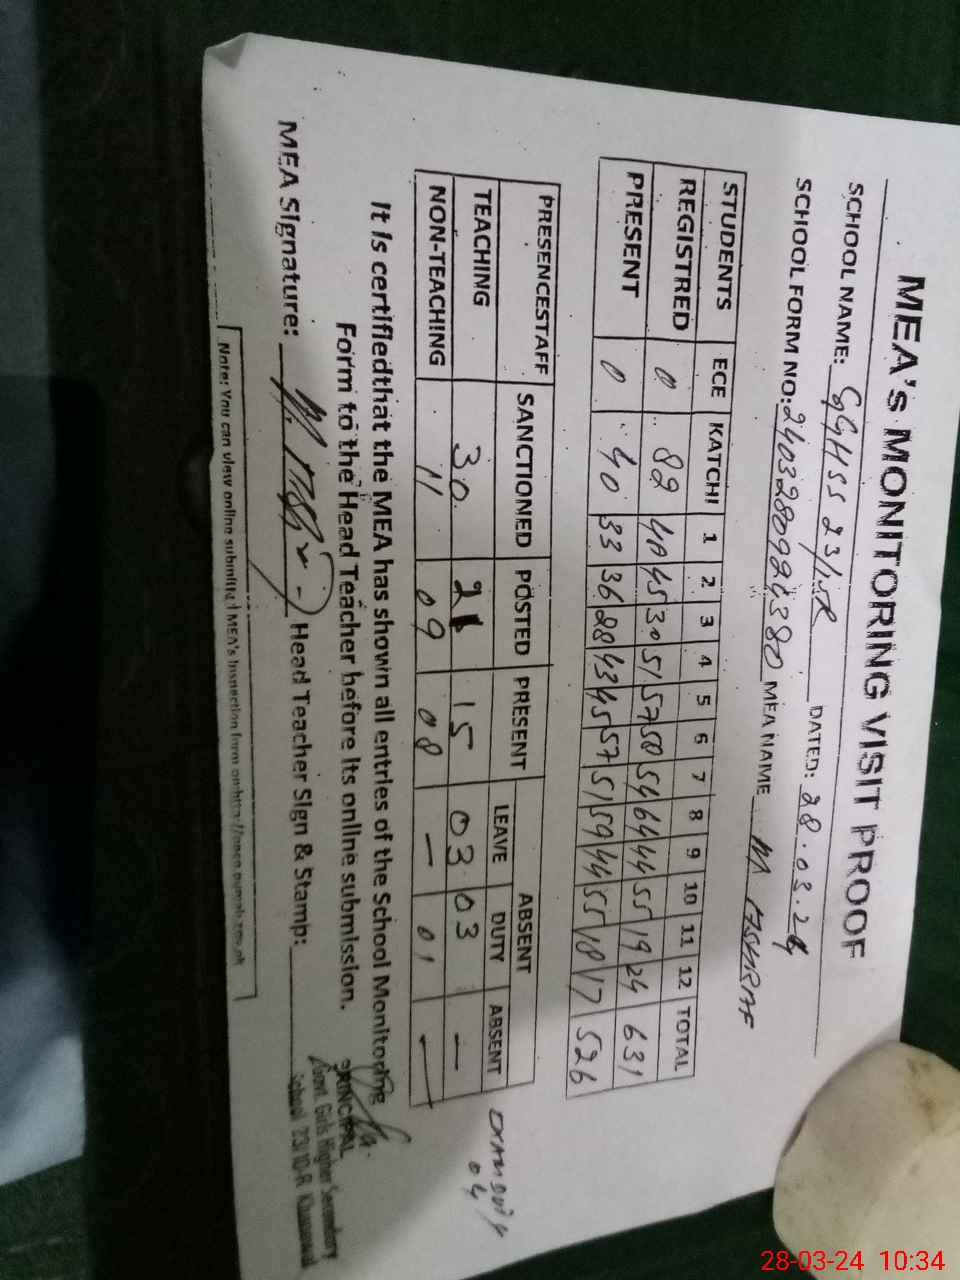 MEA'S MONITORING VISIT PROOF
SCHOOL NAME: GGHSS 23/10R DATED: 28.03.24
SCHOOL FORM NO: MEA NAME M ASHRAF
STUDENTS ECE KATCHI 1 2 3 4 5 6 7 8 9 10 11 12 TOTAL
REGISTRED 0 82 48 45 30 51 57 58 54 64 44 55 19 24 631
PRESENT 0 40 33 36 28 43 45 57 51 59 44 55 18 17 526
ABSENT
PRESENCESTAFF SANCTIONED POSTED PRESENT LEAVE DUTY ABSENT
TEACHING 30 21 15 03 03 —
NON-TEACHING 11 09 08 — 01 —
EXAM DUTY
04
It is certifiedthat the MEA has shown all entries of the School Monitoring
Form to the Head Teacher before its online submission.
MEA Signature: Head Teacher Sign & Stamp:
PRINCIPAL
Govt. Girls Higher Secondary
School 23/10-R Khanewal
Note: You can view online submitted MEA's Inspection form on:
28-03-24 10:34